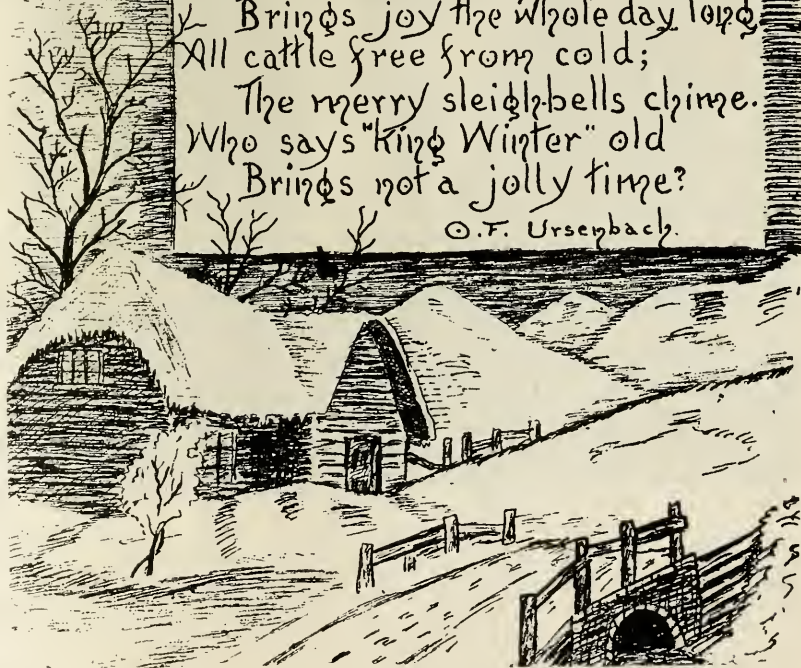 Brings joy the whole day long.
All cattle free from cold;
The merry sleigh-bells chime.
Who says "King Winter" old
Brings not a jolly time?
O.F. Ursenbach.